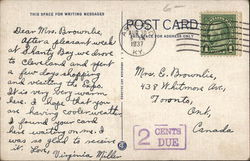 6-
THIS SPACE FOR WRITING MESSAGES
POST CARD
SPACE FOR ADDRESS ONLY
1937
KY.
Dear Mrs. Brownlie,
After a pleasant week
at Shanty Bay we drove
to Cleveland and spent
a few days shopping
and visiting the Expo.
It is very very warm
here. I hope that you
are having cooler weather.
I found your card
here waiting on me. I
was so glad to receive
it. Love,
Virginia Miller
Mrs. E. Brownlie,
438 Whitmore Ave.,
Toronto,
Ont,
Canada
2 CENTS
DUE